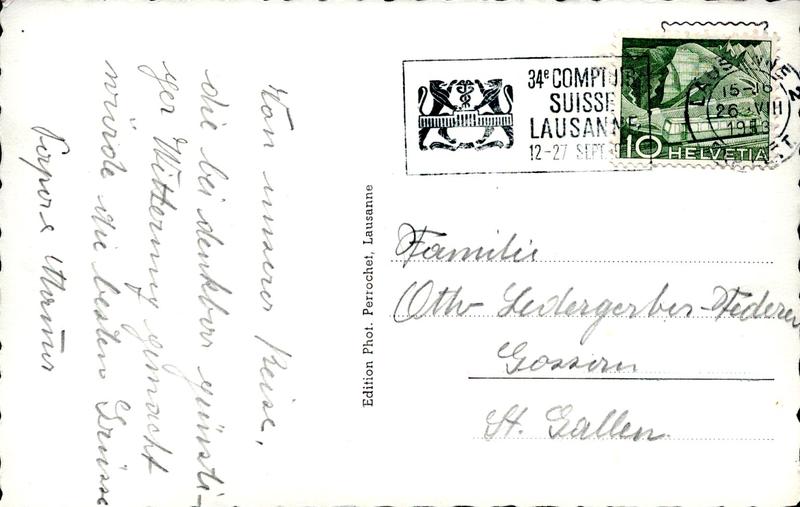 Von unserer Reise,
die bei denkbar günsti-
ger Witterung gemacht
würde die besten Grüsse
Edition Phot. Perrochet, Lausanne
34e COMPTOIR
SUISSE
LAUSANNE
12-27 SEPT.
15-16
26 VIII
10 HELVETIA
Familie
Otto Ledergerber-Federer
Gossau
St. Gallen